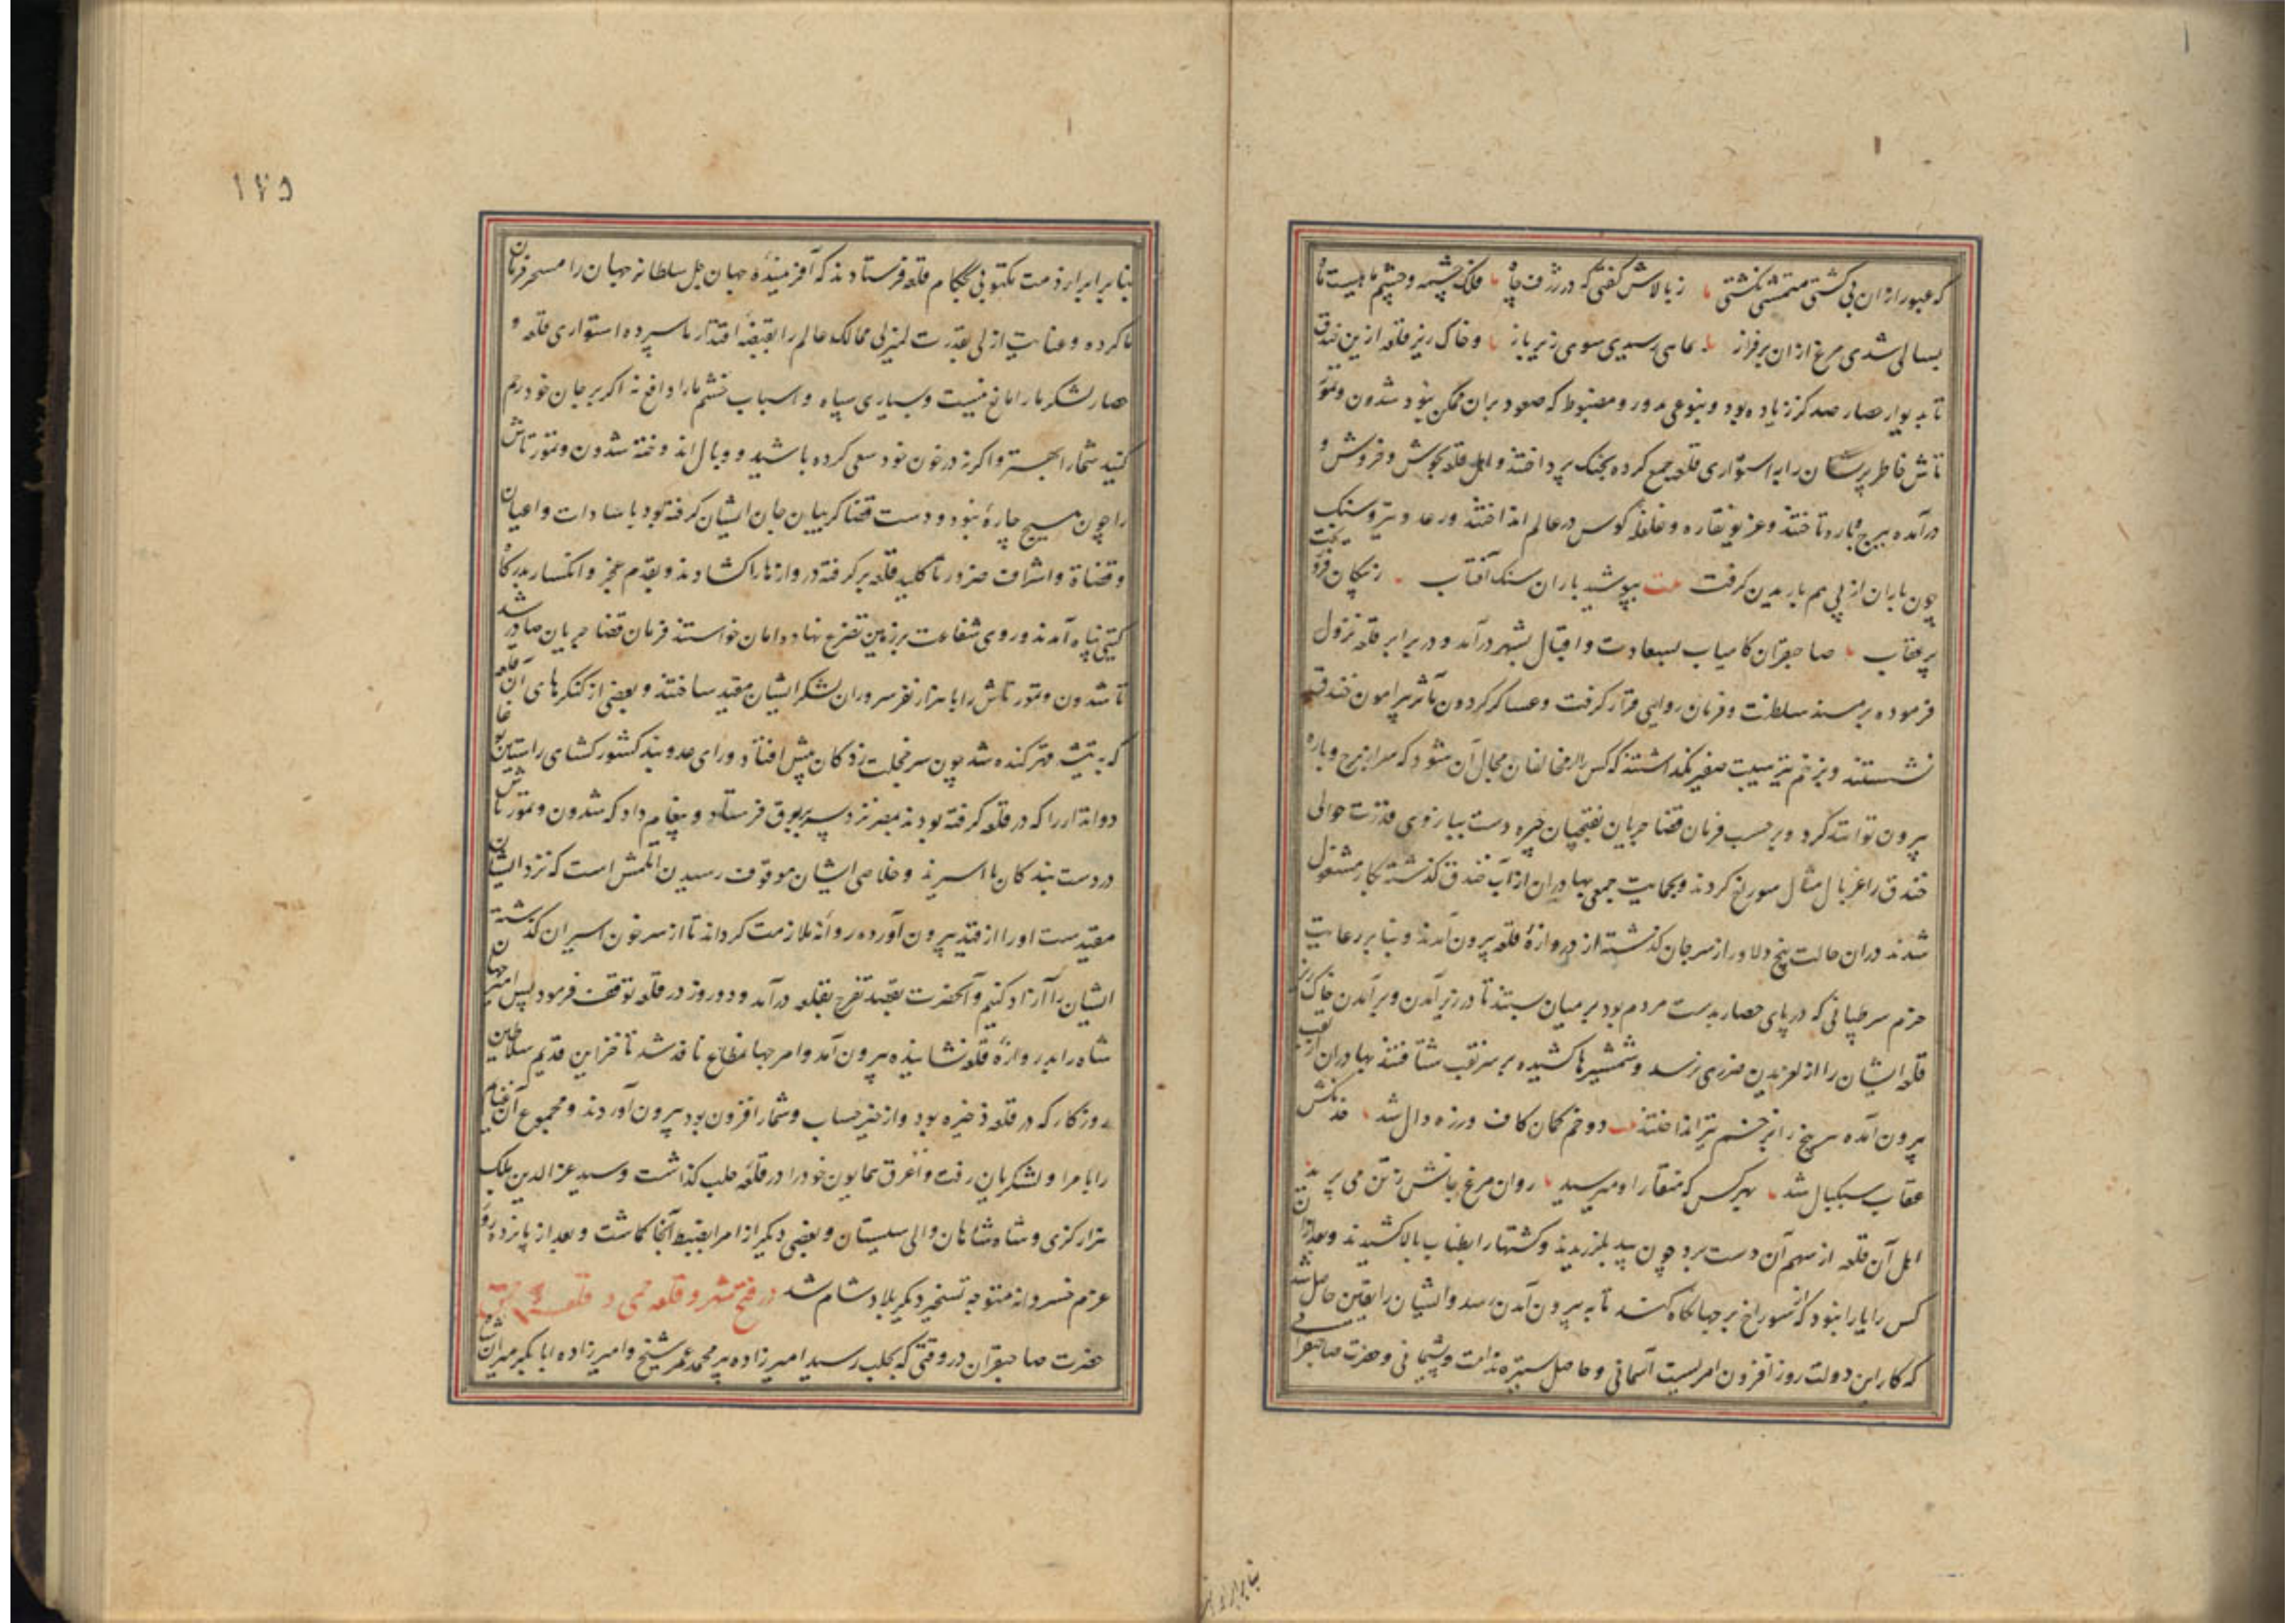 که عبور از ان بی کشتی متمشی نکشتی ز بالاش کفتی که در ژرف چاه فلک چشمه و چشم ماهیست ماه
بسالی شدی مرغ ازان بر فراز بماهی رسیدی سوی زیر باز و خاک ریز قلعه ازین خندق
تا بدیوار حصار صد کز زیاده بود و بنوعی مدور و مضبوط که صعود بران ممکن نبود شدون و تمور
تاش خاطر پریشان را به استواری قلعه جمع کرده بجنک پرداختند و اهل قلعه بجوش و خروش و
درآمده ببرج و باره تاختند و غریو نقاره و غلغله کوس در عالم انداختند و رعد و تیر و سنک
چون باران از پی هم باریدن کرفت بیت بپوشید باران سنک آفتاب ز پیکان فرو ریخت
پر عقاب صاحبقران کامیاب بسعادت و اقبال بشهر درآمد و در برابر قلعه نزول
فرموده بر مسند سلطنت و فرمان روایی قرار کرفت و عساکر کردون مآثر پیرامون خندق
نشستند و بزخم تیر هیبت صفیر نکذاشتند که کس را از مخالفان مجال آن شود که سر از برج و باره
بیرون تواند کرد و بر حسب فرمان قضا جریان نقبچیان خیره دست ببازوی قدرت حوالی
خندق را غربال مثال سوراخ کردند و بحمایت جمعی بهادران از آب خندق کذشته بکار مشغول
شدند دران حالت پنج دلاور از سر جان کذشته از دروازهٔ قلعه بیرون آمدند و بنابر رعایت
حزم سر طنابی که در پای حصار بدست مردم بود بر میان بستند تا در زیر آمدن و بر آمدن خاک ریز
قلعه ایشان را از لغزیدن ضرری نرسد و شمشیرها کشیده بر سر نقب شتافتند بهادران از نقب
بیرون آمده هر پنج را بزخم تیر انداختند دو خم کمان کاف و زه دال شد خدنکش
عقاب سبکبال شد بهر کس که منقار او میرسید روان مرغ جانش ز تن می پرید
اهل آن قلعه از سهم آن دست برد چون بید بلرزیدند و کشتها را بطناب بالا کشیدند و بعد ازان
کس را یارا نبود که از سوراخ برجها نکاه کند تا به بیرون آمدن رسد و ایشان را یقین حاصل شد
که کار این دولت روز افزون امریست آسمانی و حاصل ستیزه ندامت و پشیمانی و حضرت صاحبقرانی
بنابر ابراز ذمت مکتوبی بحکام قلعه فرستادند که آفرینندهٔ جهان جل سلطانه جهان را مسخر فرمان
ما کرده و عنایت ازلی بقدرت لمیزلی ممالک عالم را بقبضهٔ اقتدار ما سپرده استواری قلعه و
حصار لشکر ما را مانع نیست و بسیاری سپاه و اسباب خشم ما را دافع نه اکر بر جان خود رحم
کنید شما را بهتر و اکر نه در خون خود سعی کرده باشید و وبال اندوخته شدون و تمور تاش
را چون هیچ چارهٔ نبود و دست قضا کریبان جان ایشان کرفته بود با سادات و اعیان
و قضاة و اشراف ضرورتا کلید قلعه بر کرفته دروازها را کشادند و بقدم عجز و انکسار بدرکاه
کیتی پناه آمدند و روی شفاعت بر زمین تضرع نهاده امان خواستند فرمان قضا جریان صادر شد
تا شدون و تمور تاش را با هزار نفر سروران لشکر ایشان مقید ساختند و بعضی از کنکرهای آن قلعه
که بتیشه قهر کنده شد چون سر خجلت زدکان پیش افتاد و رای عدو بند کشور کشای راستین
دواتدار را که در قلعه کرفته بودند بمصر نزد پسر برقوق فرستاد و پیغام داد که شدون و تمور تاش
در دست بندکان ما اسیرند و خلاصی ایشان موقوف رسیدن اتلمش است که نزد ایشان
مقیدست او را از قید بیرون آورده روانهٔ ملازمت کرداند تا از سر خون اسیران کذشته
ایشان را آزاد کنیم و آنحضرت بقصد تفرج بقلعه درآمد و دو روز در قلعه توقف فرمود پس امیر جهان
شاه را بدروازهٔ قلعه نشانیده بیرون آمد و امر جهانمطاع نافذ شد تا خزاین قدیم سلاطین
روزکار که در قلعه ذخیره بود و از حیز حساب و شمار افزون بود بیرون آوردند و مجموع آن غنایم
را بامرا و لشکریان رفت و اغرق همایون خود را در قلعهٔ حلب کذاشت و سید عزالدین ملک
هزار کزی و شاه شاهان والی سیستان و بعضی دیکر از امرا بضبط آنجا کماشت و بعد از پانزده روز
عزم خسروانه متوجه تسخیر دیکر بلاد شام شد در فتح شهر و قلعه حمی و قلعه
حضرت صاحبقران در وقتی که بحلب رسید امیرزاده پیر محمد عمر شیخ و امیرزاده ابا بکر میران شاه
۱۷۵
بنابر ابراز